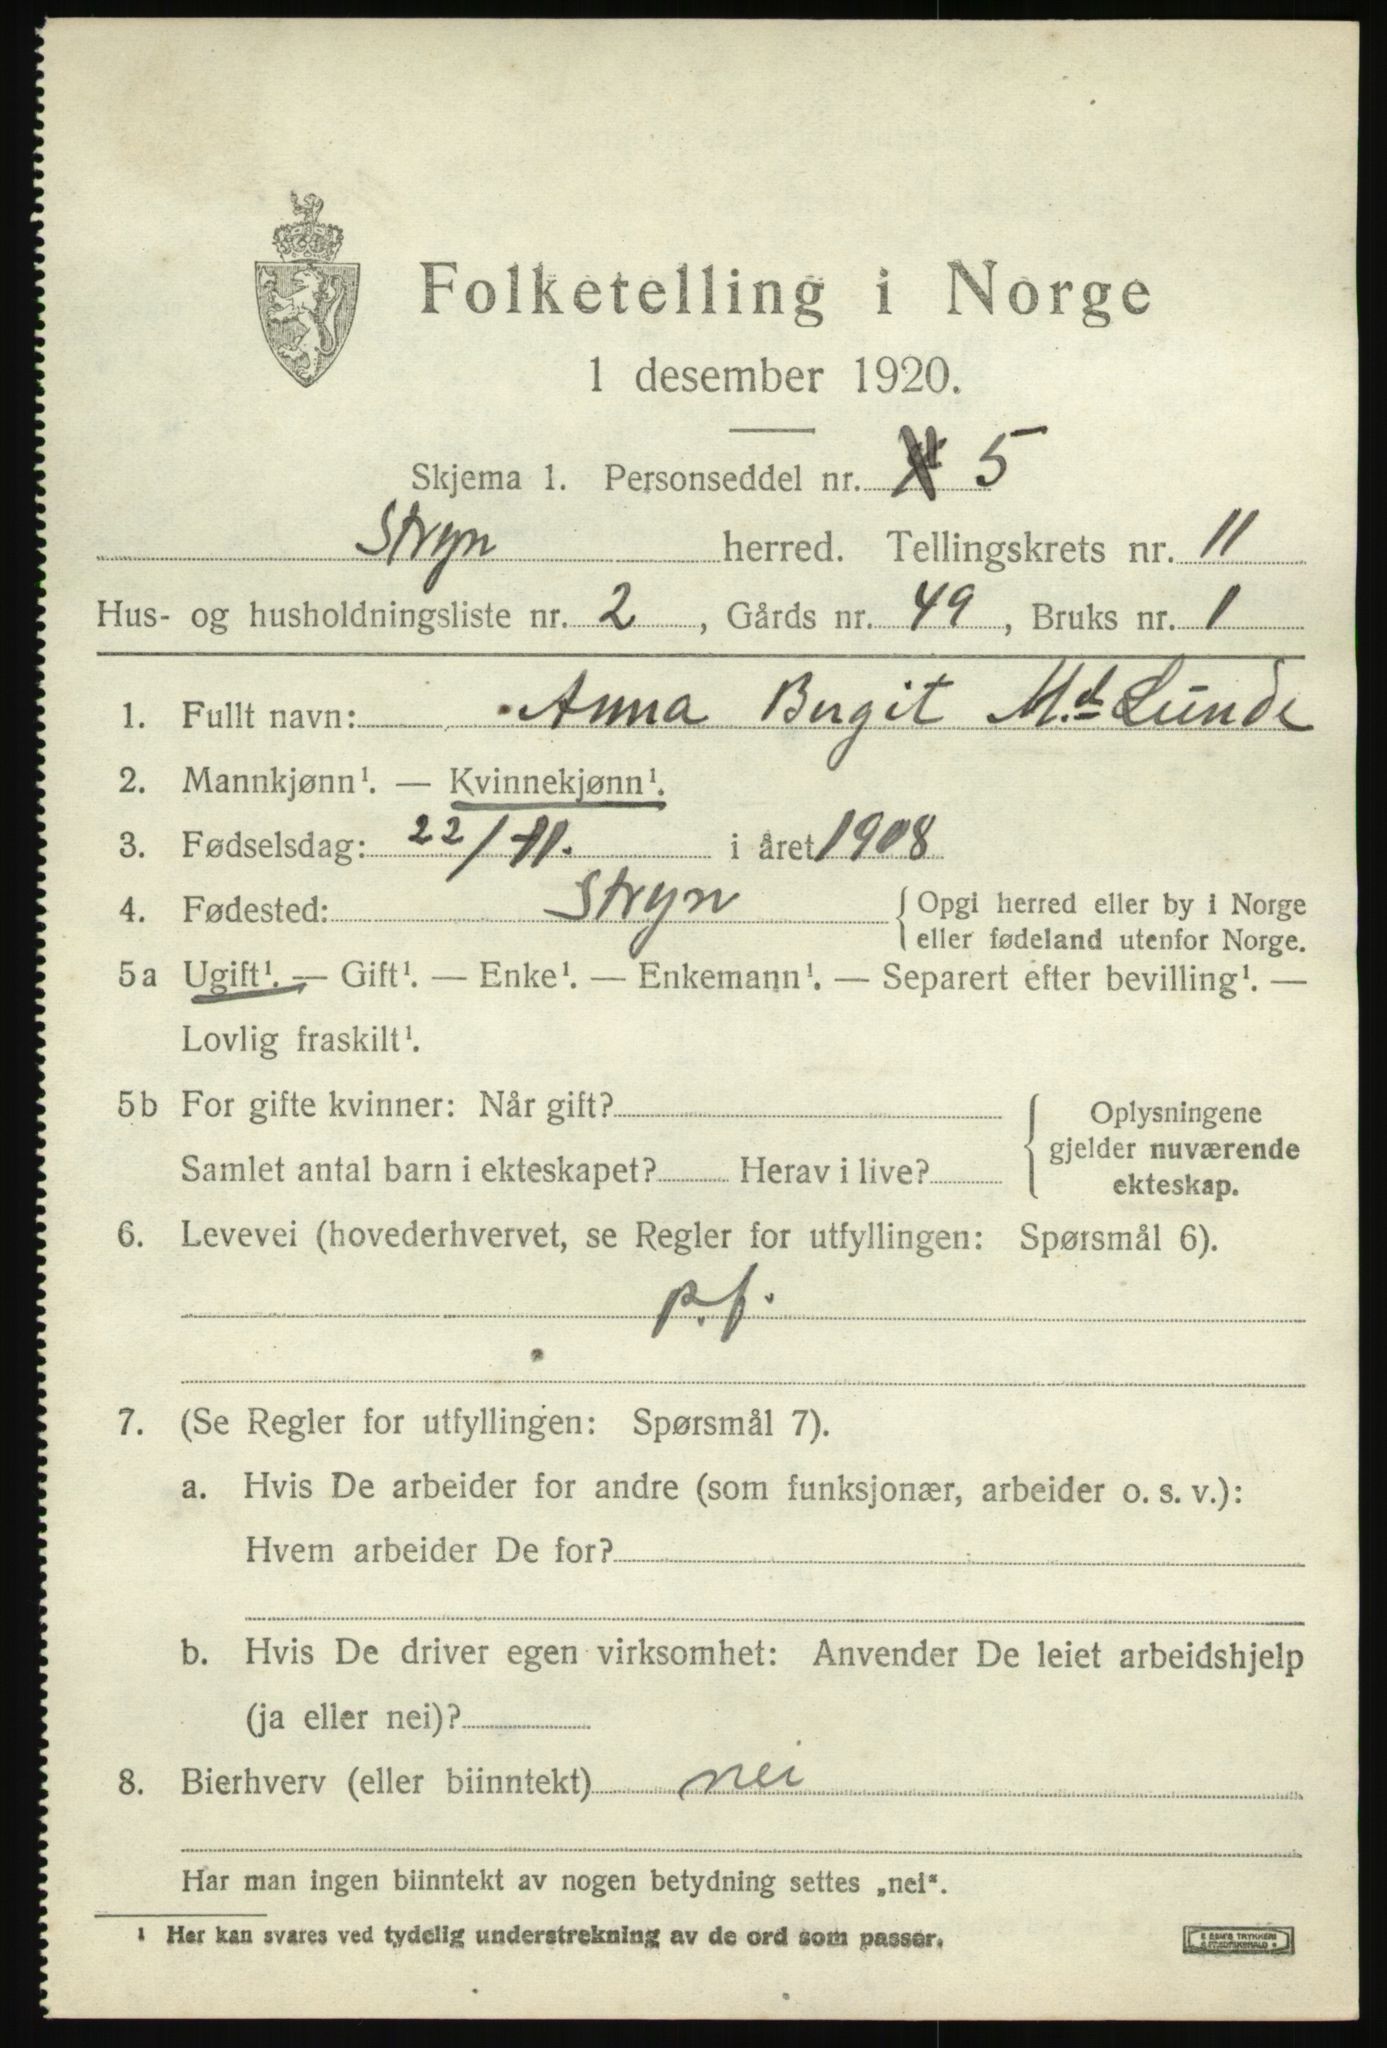 Folketelling i Norge
1 desember 1920.
Skjema 1. Personseddel nr. 5
Stryn herred. Tellingskrets nr. 11
Hus- og husholdningsliste nr. 2, Gårds nr. 49, Bruks nr. 1
1. Fullt navn: Anna Birgit M.d. Lunde
2. Mannkjønn¹. — Kvinnekjønn¹.
3. Fødselsdag: 22/11. i året 1908
4. Fødested: Stryn { Opgi herred eller by i Norge
eller fødeland utenfor Norge.
5a Ugift¹. — Gift¹. — Enke¹. — Enkemann¹. — Separert efter bevilling¹. —
Lovlig fraskilt¹.
5b For gifte kvinner: Når gift? { Oplysningene
gjelder nuværende
Samlet antal barn i ekteskapet? Herav i live? ekteskap.
6. Levevei (hovederhvervet, se Regler for utfyllingen: Spørsmål 6).
p.f.
7. (Se Regler for utfyllingen: Spørsmål 7).
a. Hvis De arbeider for andre (som funksjonær, arbeider o. s. v.):
Hvem arbeider De for?
b. Hvis De driver egen virksomhet: Anvender De leiet arbeidshjelp
(ja eller nei)?
8. Bierhverv (eller biinntekt) nei
Har man ingen biinntekt av nogen betydning settes „nei“.
¹ Her kan svares ved tydelig understrekning av de ord som passer.